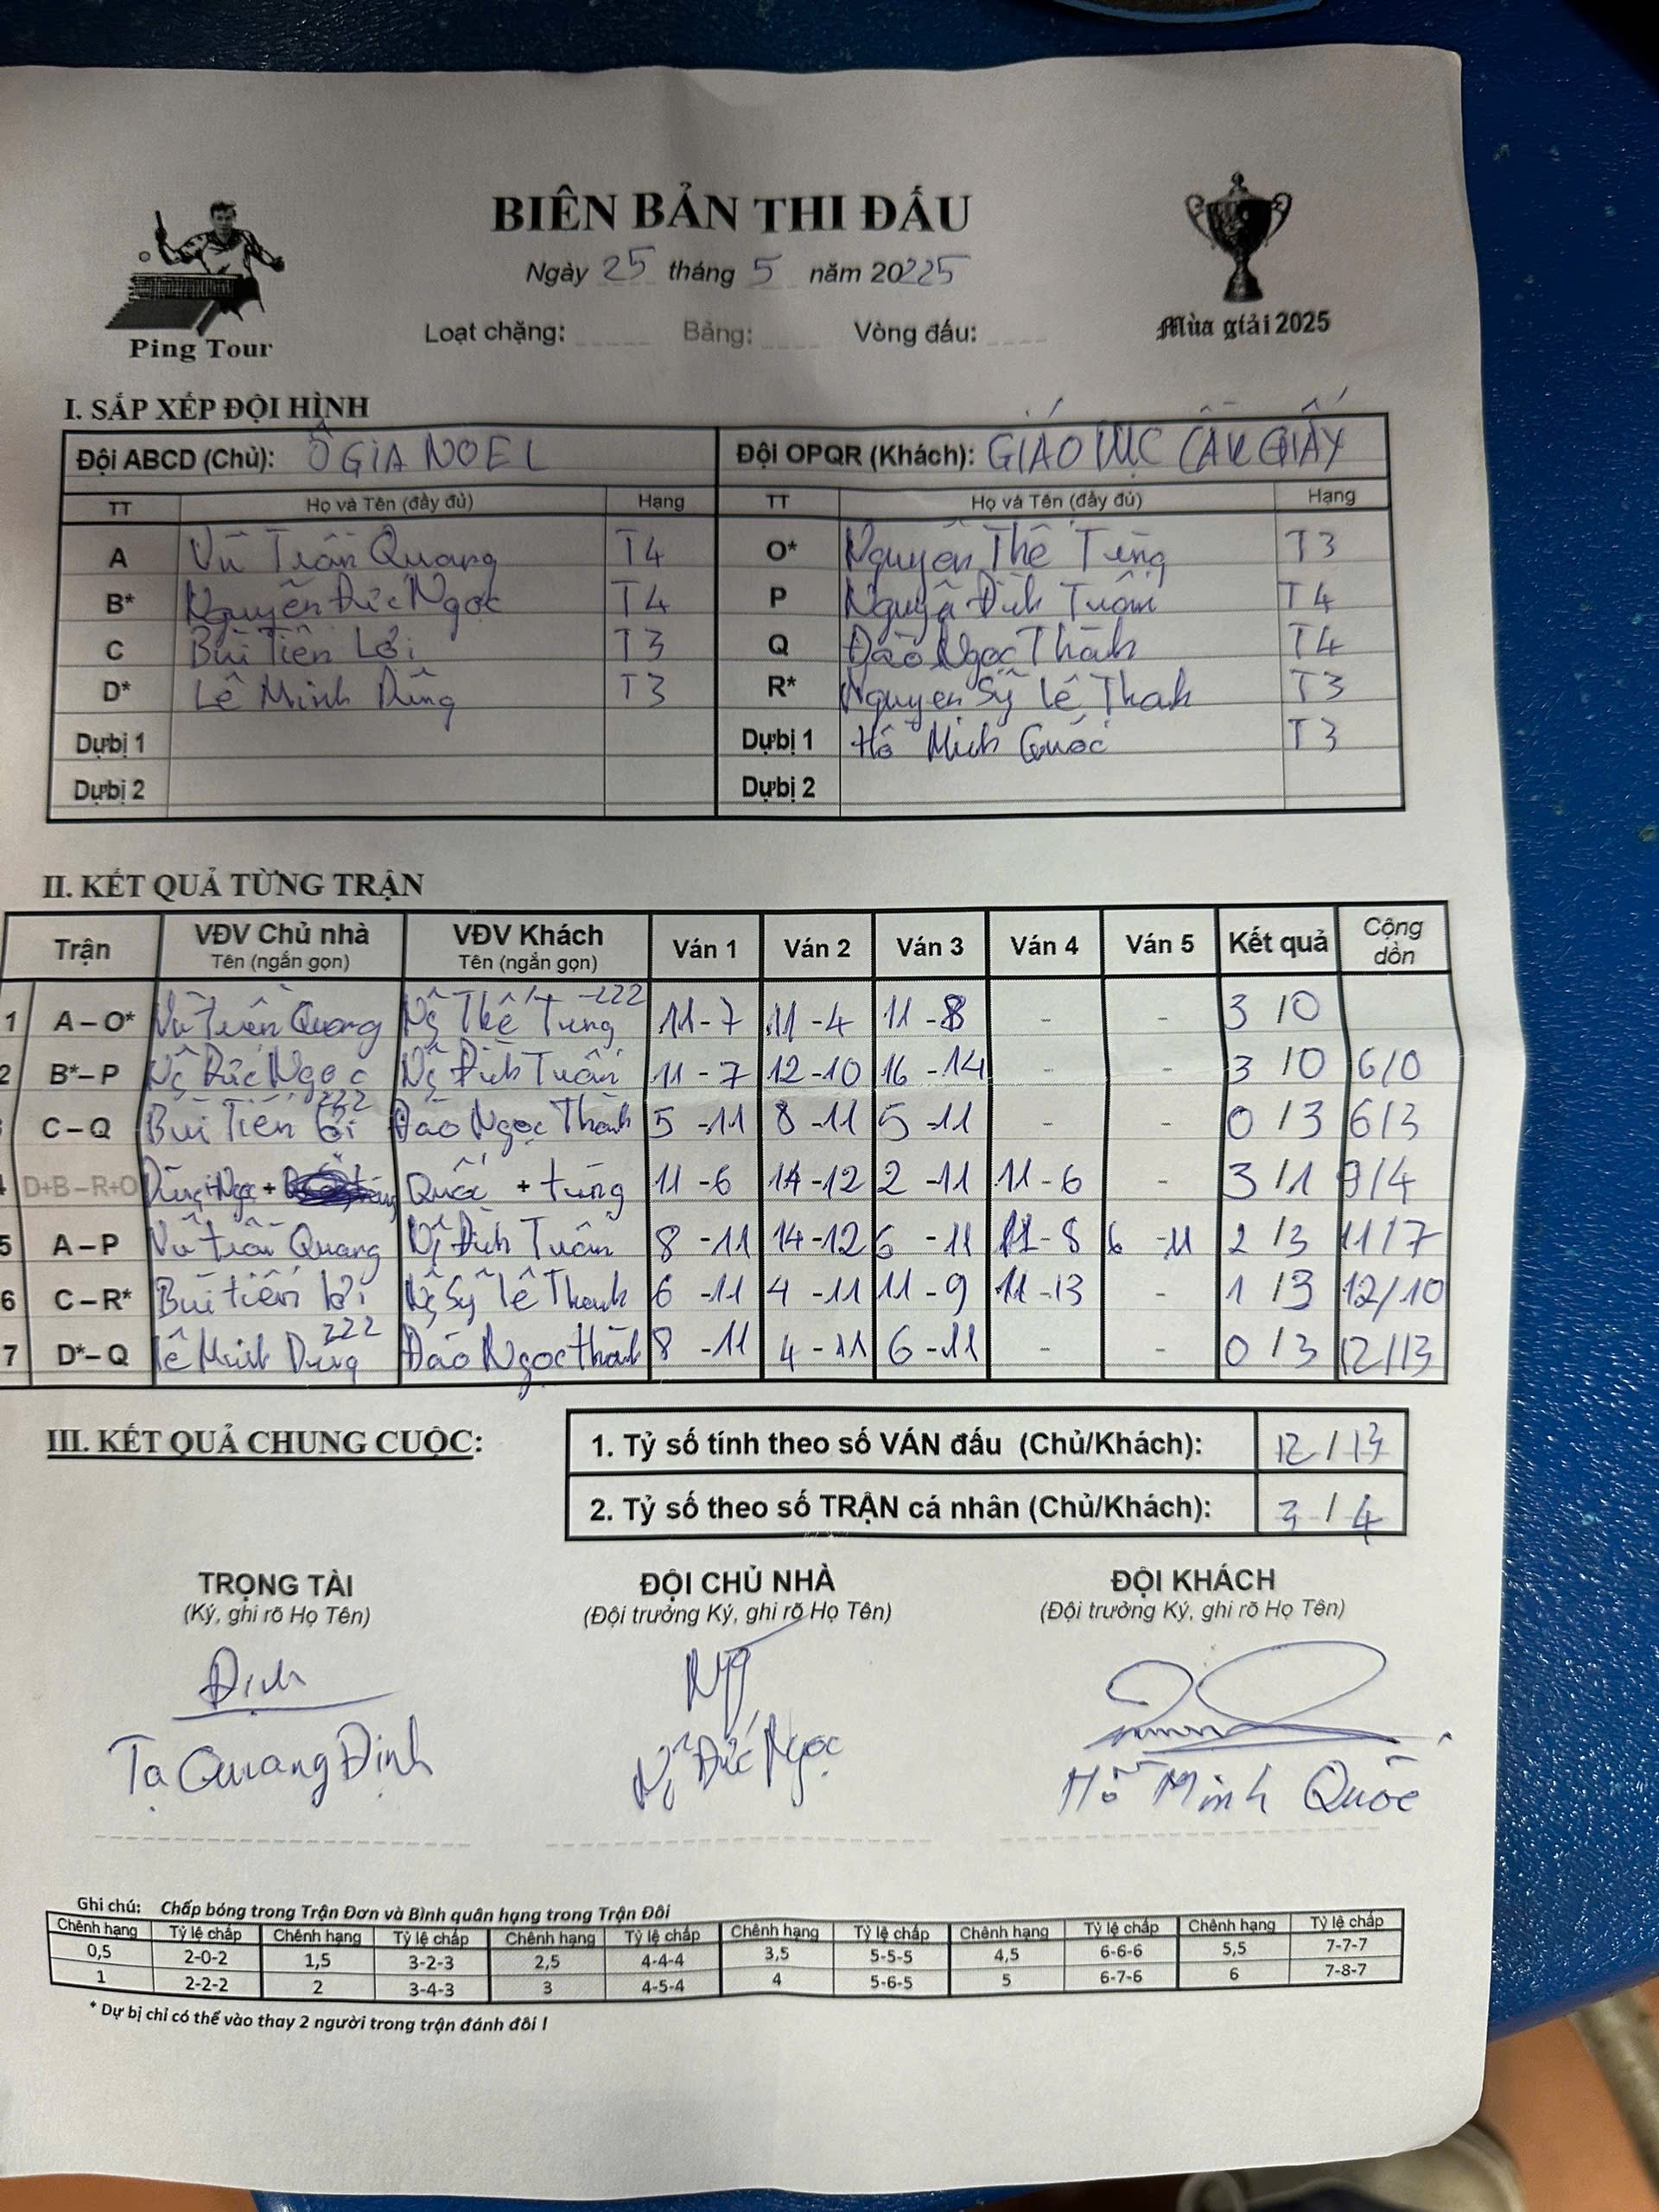 BIÊN BẢN THI ĐẤU
Ngày 25 tháng 5 năm 20225
Loạt chặng: Bảng: Vòng đấu:
Ping Tour
Mùa giải 2025
I. SẮP XẾP ĐỘI HÌNH
Đội ABCD (Chủ): Ô GIA NOEL Đội OPQR (Khách): GIÁO DỤC CẦU GIẤY
TT Họ và Tên (đầy đủ) Hạng TT Họ và Tên (đầy đủ) Hạng
A Vũ Trần Quang T4 O* Nguyễn Thế Tùng T3
B* Nguyễn Đức Ngọc T4 P Nguyễn Đình Tuấn T4
C Bùi Tiến Lợi T3 Q Đào Ngọc Thành T4
D* Lê Minh Dũng T3 R* Nguyễn Sỹ Lê Thanh T3
Dự bị 1 Dự bị 1 Hồ Minh Quốc T3
Dự bị 2 Dự bị 2
II. KẾT QUẢ TỪNG TRẬN
Trận VĐV Chủ nhà VĐV Khách Ván 1 Ván 2 Ván 3 Ván 4 Ván 5 Kết quả Cộng dồn
Tên (ngắn gọn) Tên (ngắn gọn)
1 A – O* Vũ Trần Quang Ng̃ Thế Tùng 222 11 - 7 11 - 4 11 - 8 - - 3 / 0
2 B* – P Ng̃ Đức Ngọc Ng̃ Đình Tuấn 11 - 7 12 - 10 16 - 14 - - 3 / 0 6/0
C – Q Bùi Tiến Lợi 222 Đào Ngọc Thành 5 - 11 8 - 11 5 - 11 - - 0 / 3 6/3
D+B – R+O Dũng + Ngọc + Quốc + tùng 11 - 6 14 - 12 2 - 11 11 - 6 - 3 / 1 9/4
5 A – P Vũ trần Quang Ng̃ Đình Tuấn 8 - 11 14 - 12 6 - 11 11 - 8 6 - 11 2 / 3 11/7
6 C – R* Bùi tiến lợi Ng̃ Sỹ Lê Thanh 6 - 11 4 - 11 11 - 9 11 - 13 - 1 / 3 12/10
7 D* – Q Lê Minh Dũng 222 Đào Ngọc thành 8 - 11 4 - 11 6 - 11 - - 0 / 3 12/13
III. KẾT QUẢ CHUNG CUỘC:
1. Tỷ số tính theo số VÁN đấu (Chủ/Khách): 12 / 13
2. Tỷ số theo số TRẬN cá nhân (Chủ/Khách): 3 / 4
TRỌNG TÀI ĐỘI CHỦ NHÀ ĐỘI KHÁCH
(Ký, ghi rõ Họ Tên) (Đội trưởng Ký, ghi rõ Họ Tên) (Đội trưởng Ký, ghi rõ Họ Tên)
Định
Tạ Quang Định Ng̃ Đức Ngọc Hồ Minh Quốc
Ghi chú: Chấp bóng trong Trận Đơn và Bình quân hạng trong Trận Đôi
Chênh hạng Tỷ lệ chấp Chênh hạng Tỷ lệ chấp Chênh hạng Tỷ lệ chấp Chênh hạng Tỷ lệ chấp Chênh hạng Tỷ lệ chấp Chênh hạng Tỷ lệ chấp
0,5 2-0-2 1,5 3-2-3 2,5 4-4-4 3,5 5-5-5 4,5 6-6-6 5,5 7-7-7
1 2-2-2 2 3-4-3 3 4-5-4 4 5-6-5 5 6-7-6 6 7-8-7
* Dự bị chỉ có thể vào thay 2 người trong trận đánh đôi !